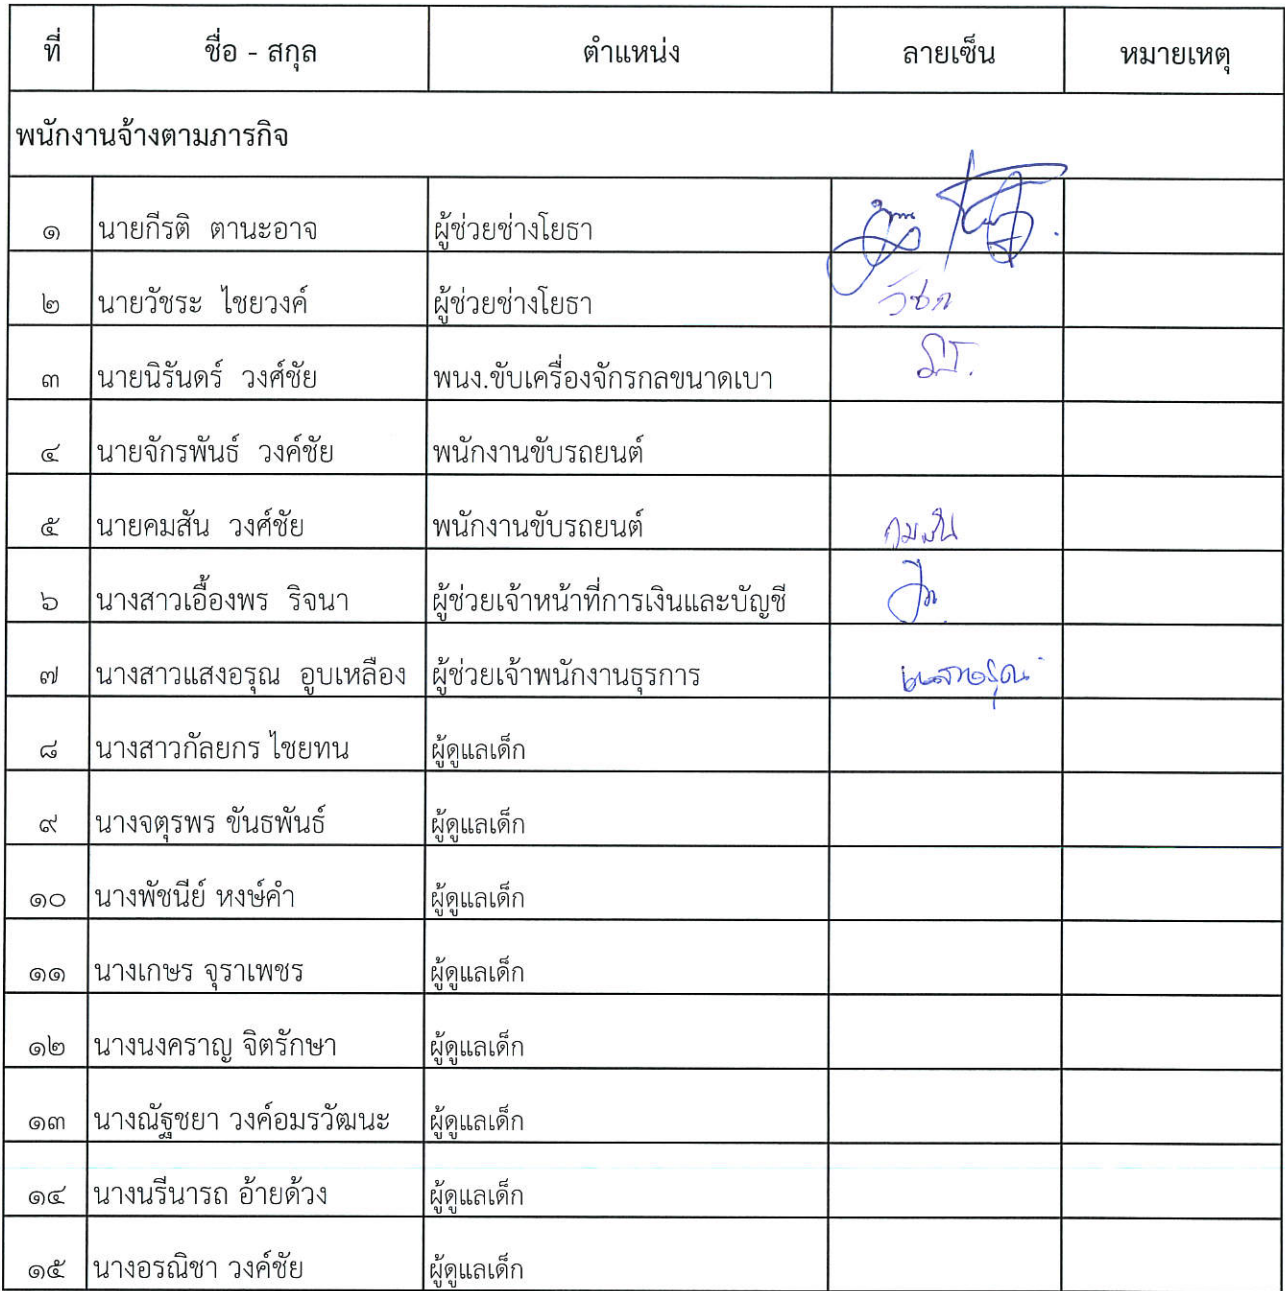 ที่ ชื่อ - สกุล ตำแหน่ง ลายเซ็น หมายเหตุ
พนักงานจ้างตามภารกิจ
๑ นายกีรติ ตานะอาจ ผู้ช่วยช่างโยธา
๒ นายวัชระ ไชยวงค์ ผู้ช่วยช่างโยธา
๓ นายนิรันดร์ วงศ์ชัย พนง.ขับเครื่องจักรกลขนาดเบา
๔ นายจักรพันธ์ วงค์ชัย พนักงานขับรถยนต์
๕ นายคมสัน วงศ์ชัย พนักงานขับรถยนต์
๖ นางสาวเอื้องพร ริจนา ผู้ช่วยเจ้าหน้าที่การเงินและบัญชี
๗ นางสาวแสงอรุณ อูบเหลือง ผู้ช่วยเจ้าพนักงานธุรการ
๘ นางสาวกัลยกร ไชยทน ผู้ดูแลเด็ก
๙ นางจตุรพร ขันธพันธ์ ผู้ดูแลเด็ก
๑๐ นางพัชนีย์ หงษ์คำ ผู้ดูแลเด็ก
๑๑ นางเกษร จุราเพชร ผู้ดูแลเด็ก
๑๒ นางนงคราญ จิตรักษา ผู้ดูแลเด็ก
๑๓ นางณัฐชยา วงค์อมรวัฒนะ ผู้ดูแลเด็ก
๑๔ นางนรีนารถ อ้ายด้วง ผู้ดูแลเด็ก
๑๕ นางอรณิชา วงค์ชัย ผู้ดูแลเด็ก